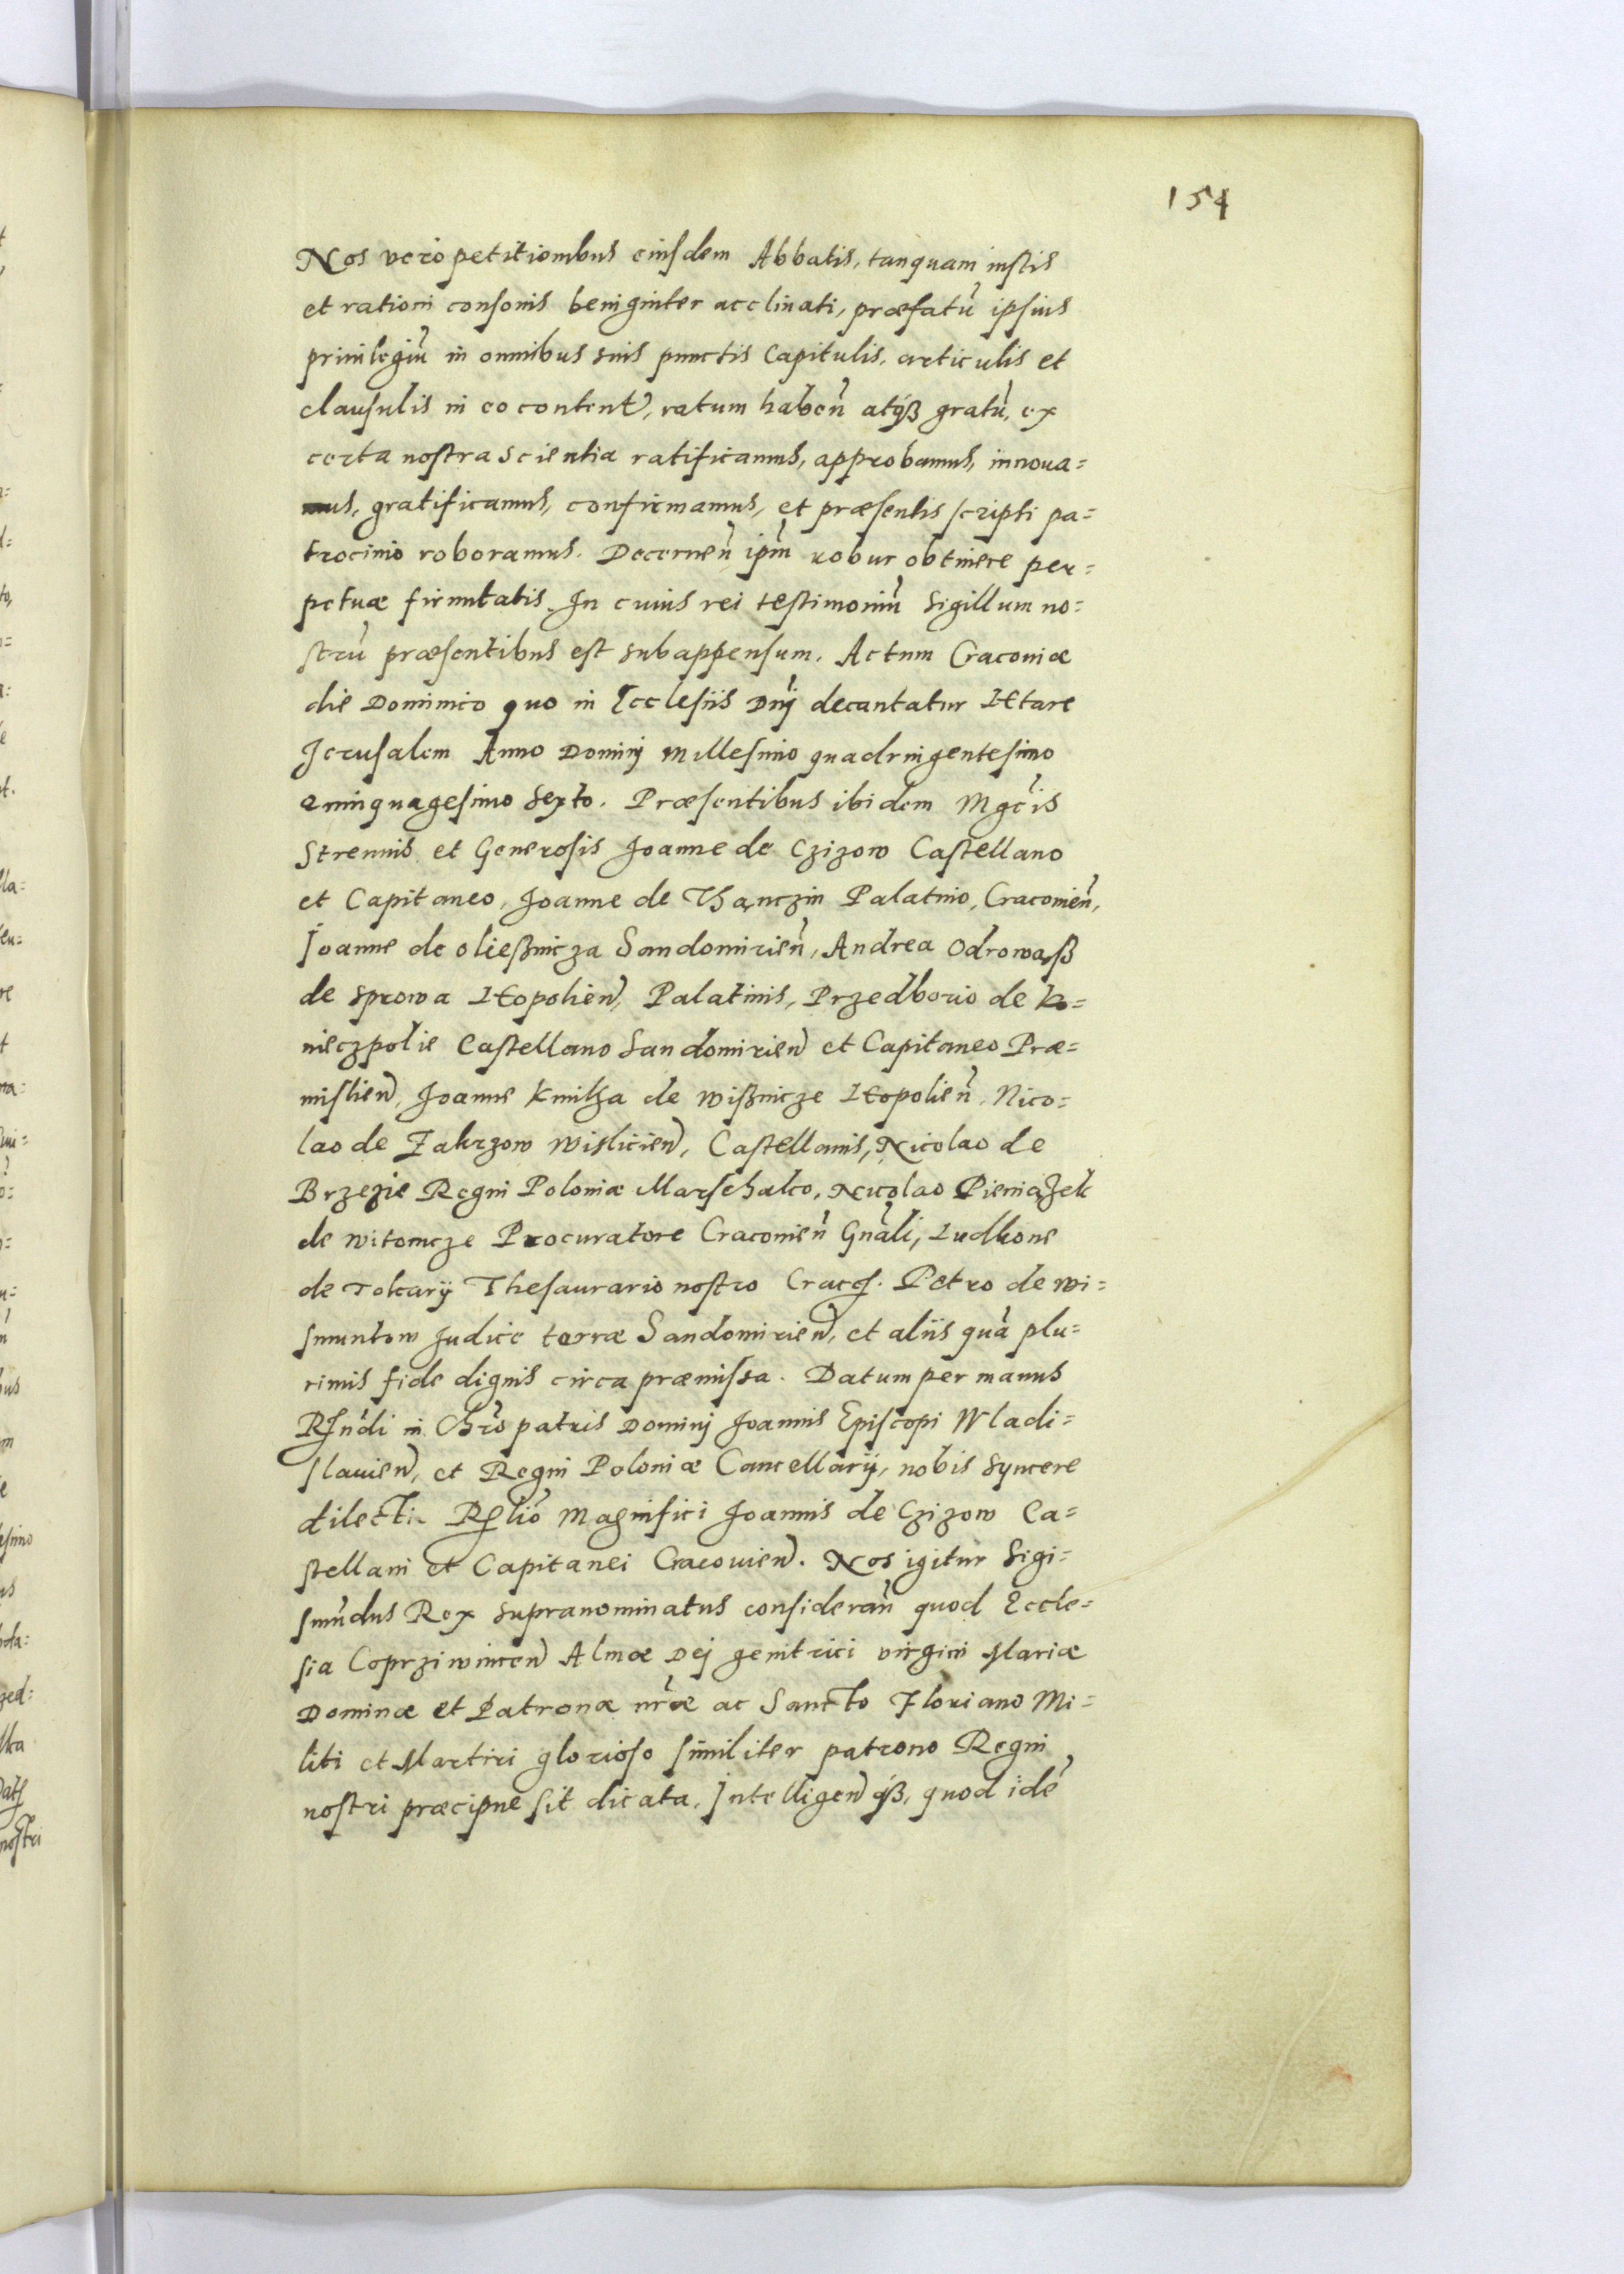 154
Nos vero petitionibus eiusdem Abbatis, tanquam iustis
et rationi consonis benigniter acclinati, præfatũ ipsius
priuilegiũ in omnibus suis punctis Capitulis, articulis et
clausulis in eo content, ratum habeñ atqß gratũ, ex
certa nostra scientia ratificamus, approbamus, innoua=
mus, gratificamus, confirmamus, et præsentis scripti pa=
trocinio roboramus. Decerneñ ipm̃ robur obtinere per=
petuæ firmitatis. In cuius rei testimoniũ Sigillum no=
strũ præsentibus est subappensum. Actum Cracouiæ
die Dominico quo in Ecclesiis Dnĩ decantatur Lętare
Jerusalem Anno Dominj millesimo quadringentesimo
quinquagesimo Sexto. Præsentibus ibidem Mgcĩs
Strenuis et Generosis Joanne de Czizow Castellano
et Capitaneo, Joanne de Thanczin Palatino, Cracouieñ,
Joanne de oließnicza Sandomirieñ, Andrea Odrowąß
de Sprowa Lęopolien, Palatinis, Przedborio de ko=
nieczpolie Castellano Sandomirien et Capitaneo Præ=
mislien, Joanne Kmitha de wißnicze Lęopolieñ, Nico=
lao de Zakrzow wislicien, Castellanis, Nicolao de
Brzezie Regni Poloniæ Marschalco, Nicolao Pieniązek
de witowicze Procuratore Cracouieñ Gnãli, Ludkone
de Tokary Thesaurario nostro Crac. Petro de wi=
smuntow Judice terræ Sandomirien, et aliis quã plu=
rimis fide dignis circa præmissa. Datum per manus
Rndĩ in Chrõ patris Dominj Joannis Episcopi Wladi=
slauien, et Regni Poloniæ Cancellarij, nobis Syncere
dilecti. Rlĩo Magnifici Joannis de Czizow Ca=
stellani et Capitanei Cracouien. Nos igitur Sigi=
smũdus Rex supranominatus considerañ quod Eccle=
sia Coprziwnicen Almæ Dej genitrici virgini Mariæ
Dominæ et Patronæ nr̃æ ac Sancto Floriano Mi=
liti et Martiri glorioso similiter patrono Regni
nostri præcipue sit dicata, Intelligen qß, quod idẽ